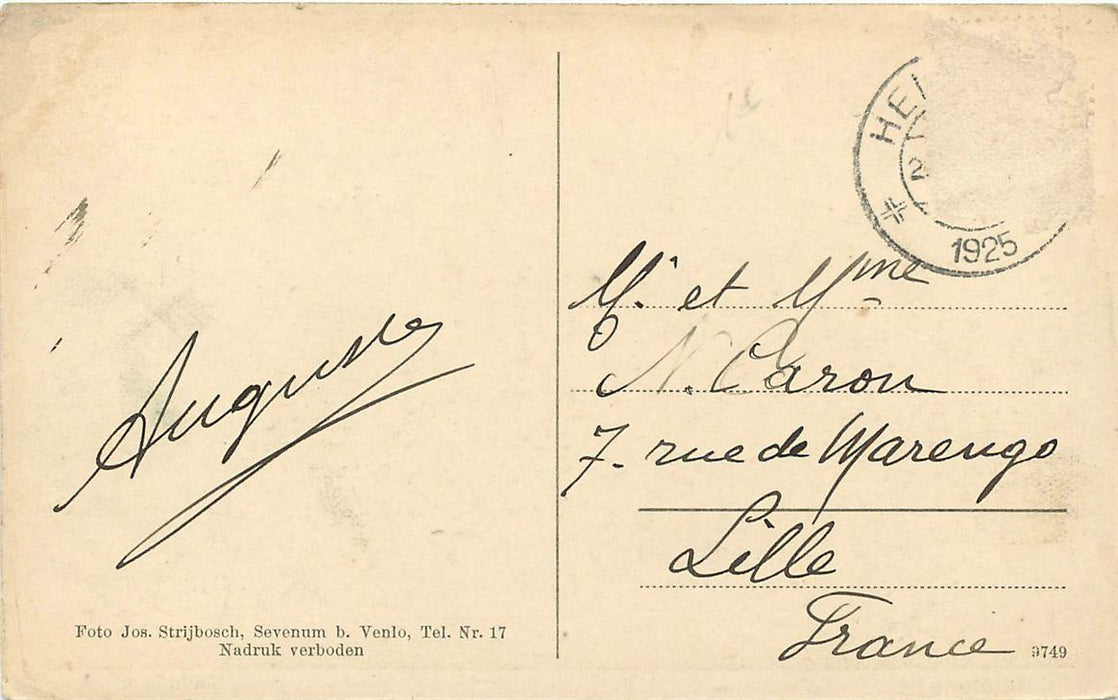 Auguste
Foto Jos. Strijbosch, Sevenum b. Venlo, Tel. Nr. 17
Nadruk verboden
HE
2
1925
M. et Mme
N. Caron
7. rue de Marengo
Lille
France
9749